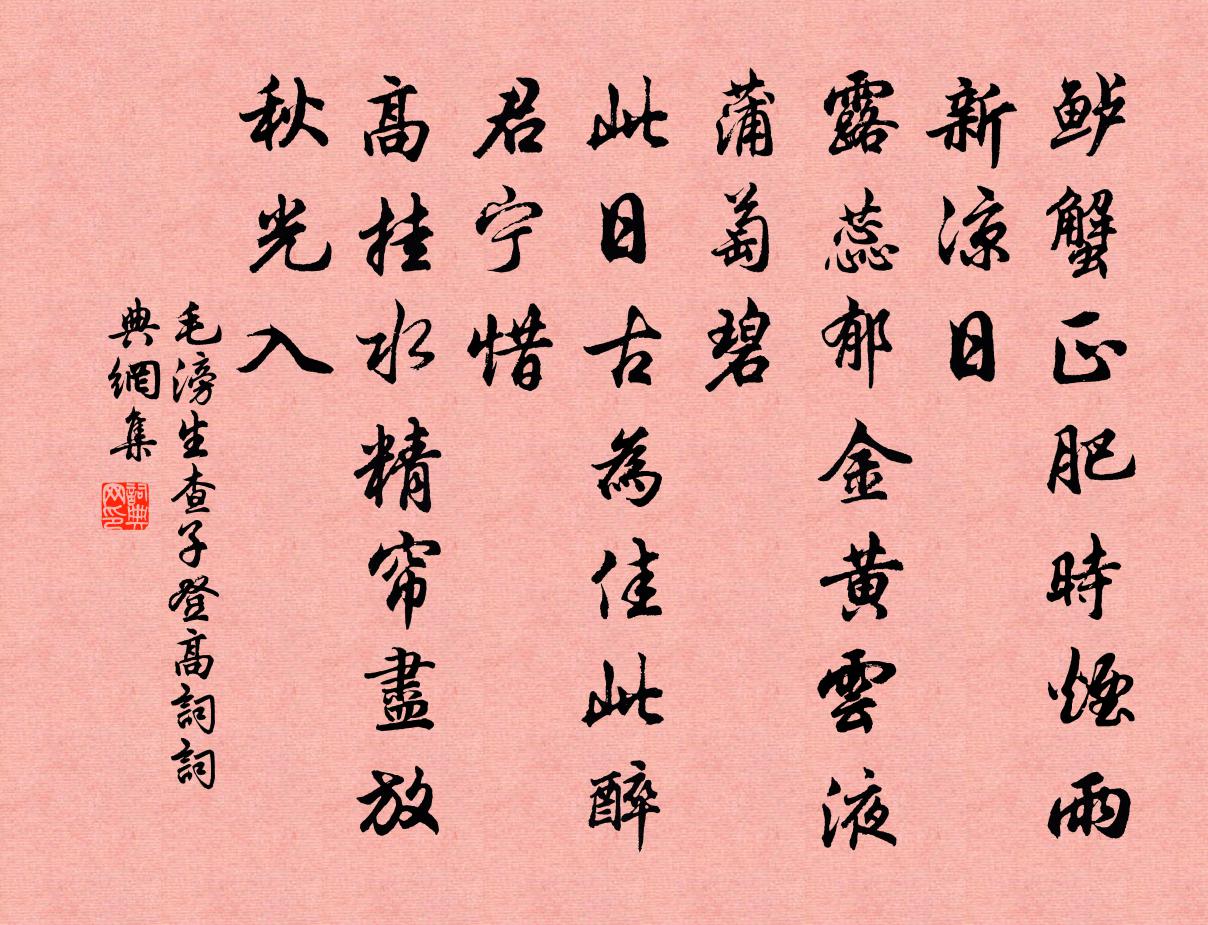 鲈蟹正肥時煙雨
新涼日
露蕊郁金黄雲液
蒲萄碧
此日古為佳此醉
君宁惜
高挂水精帘盡放
秋光入
毛滂生查子登高詞詞
典網集
詞典
网印